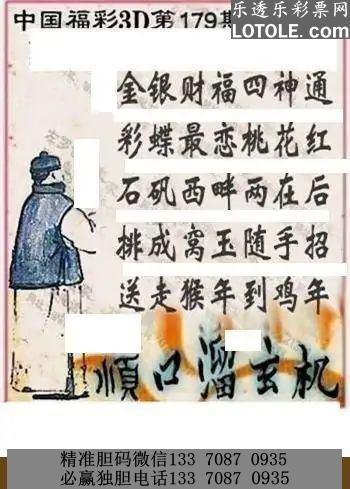 乐透乐彩票网
LOTOLE.COM
中国福彩3D第179期
金银财福四神通
彩蝶最恋桃花红
石矶西畔两在后
排成窝玉随手招
送走猴年到鸡年
顺口溜玄机
精准胆码微信133 7087 0935
必赢独胆电话133 7087 0935